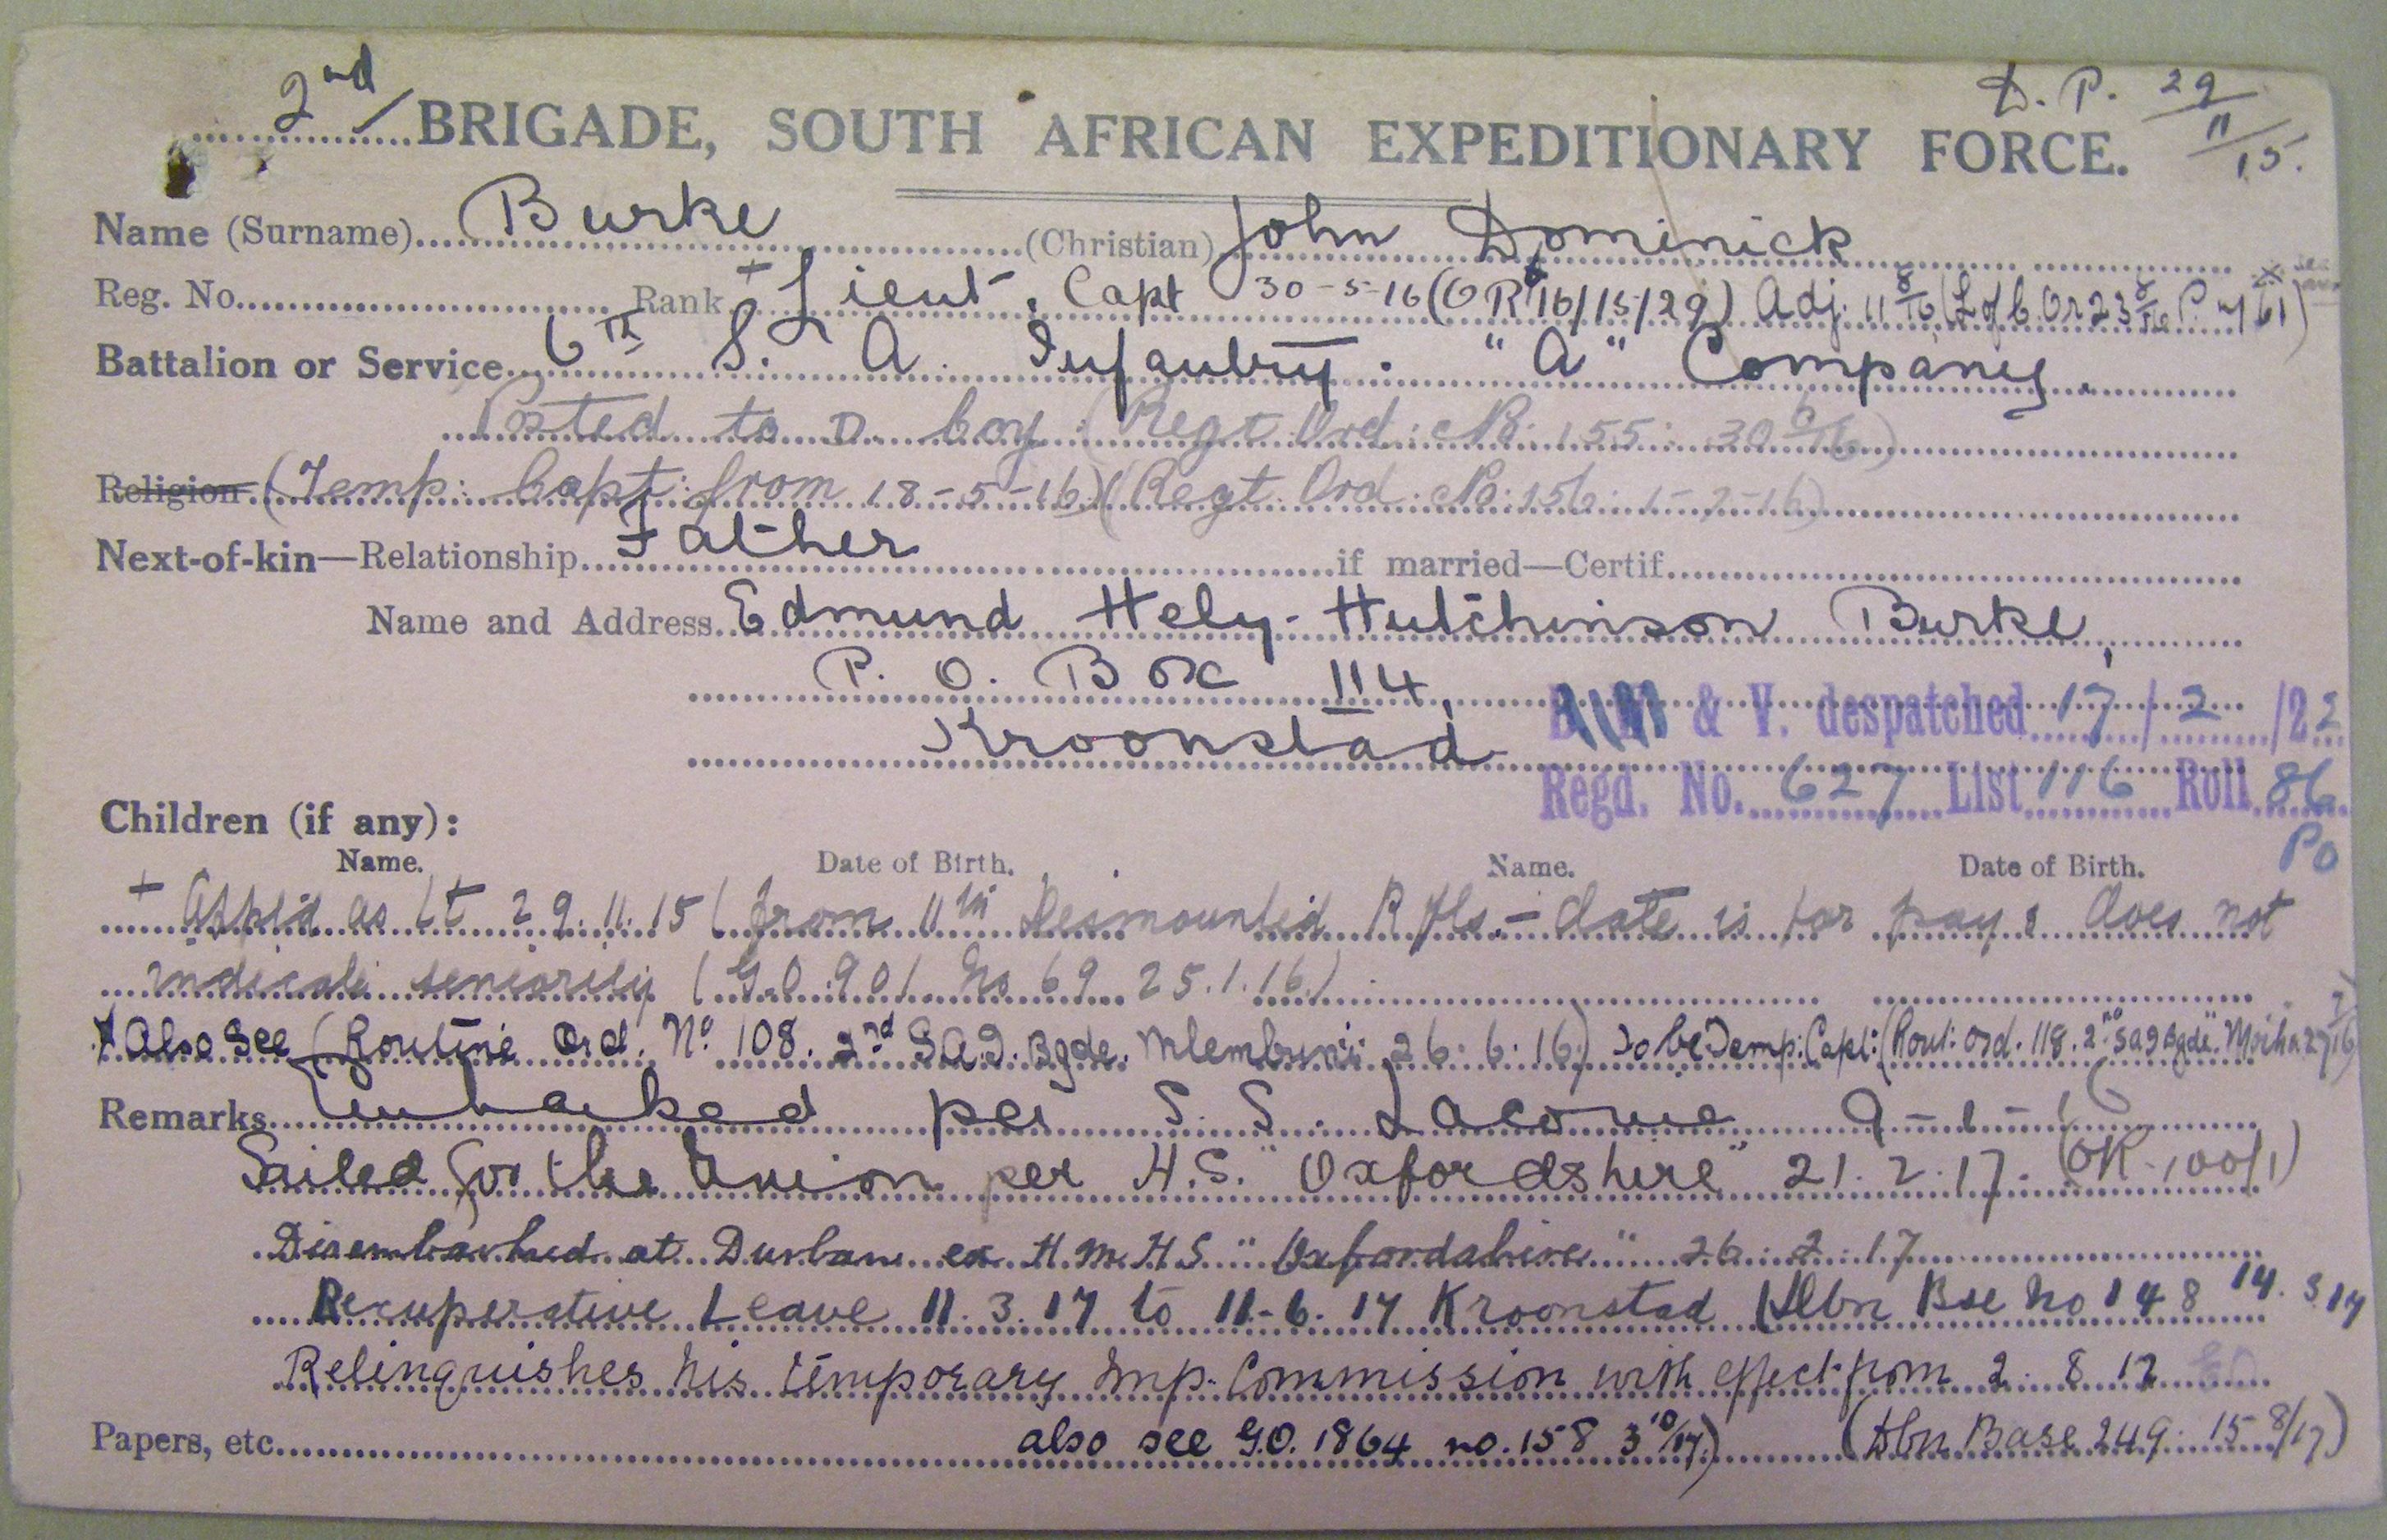 2nd/ BRIGADE, SOUTH AFRICAN EXPEDITIONARY FORCE. D. P. 29/11/15.
Name (Surname) Burke (Christian) John Dominick
Reg. No. Rank + Lieut. Capt 30-5-16 (OR 16/15/29) Adj. 11 8/16 (L of C Or 23 8/16 P 761)
Battalion or Service 6th S. A. Infantry. "A" Company.
Posted to D. Coy (Regt Ord: No: 155: 30 6/16)
Religion (Temp: Capt: from 18-5-16) (Regt. Ord: No: 156: 1-7-16)
Next-of-kin—Relationship Father if married—Certif.
Name and Address Edmund Hely-Hutchinson Burke,
P. O. Box 114,
Kroonstad
& V. despatched 17/2/22
Regd. No. 627 List 116 Roll 86
PO
Children (if any):
Name. Date of Birth. Name. Date of Birth.
+ App'd as Lt 29.11.15 (from 11th Dismounted Rfls. - date is for pay & does not
indicate seniority (G.O. 901 No 69 25.1.16)
Also See (Routine Ord. No 108. 2nd S.A.I. Bgde. 26.6.16) To be Temp: Capt: (Rout: Ord. 118. 2nd SAI Bgde. 27/7/16)
Remarks Embarked per S. S. Laconia 9-1-16
Sailed for the Union per H.S. "Oxfordshire" 21.2.17. (OR.100/1)
Disembarked at Durban ex H.M.H.S. "Oxfordshire" 26.2.17
Recuperative Leave 11.3.17 to 11-6.17 Kroonstad (Dbn Bse No 148 14.3.17
Relinquishes his temporary Imp. Commission with effect from 2.8.17
Papers, etc. also see G.O. 1864 no. 158 3 10/17) (Dbn Base 249: 15 8/17)